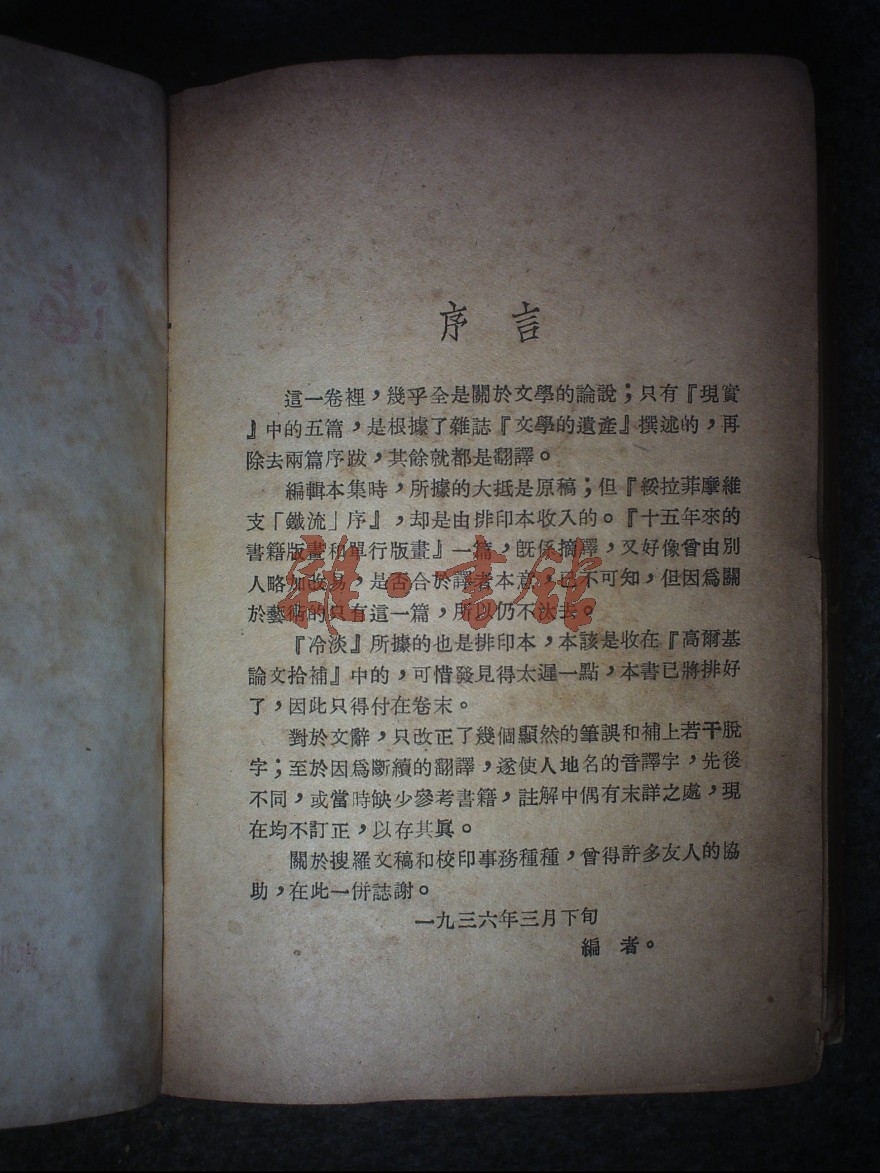 序言
這一卷裡，幾乎全是關於文學的論說；只有『現實
』中的五篇，是根據了雜誌『文學的遺產』撰述的，再
除去兩篇序跋，其餘就都是翻譯。
編輯本集時，所據的大抵是原稿；但『綏拉菲摩維
支「鐵流」序』，却是由排印本收入的。『十五年來的
書籍版畫和單行版畫』一篇，旣係摘譯，又好像曾由別
人略加改易，是否合於譯者本意，已不可知，但因爲關
於藝術的只有這一篇，所以仍不汰去。
『冷淡』所據的也是排印本，本該是收在『高爾基
論文拾補』中的，可惜發見得太遲一點，本書已將排好
了，因此只得付在卷末。
對於文辭，只改正了幾個顯然的筆誤和補上若干脫
字；至於因爲斷續的翻譯，遂使人地名的音譯字，先後
不同，或當時缺少參考書籍，註解中偶有末詳之處，現
在均不訂正，以存其眞。
關於搜羅文稿和校印事務種種，曾得許多友人的協
助，在此一併誌謝。
一九三六年三月下旬
編者。
雜·書館